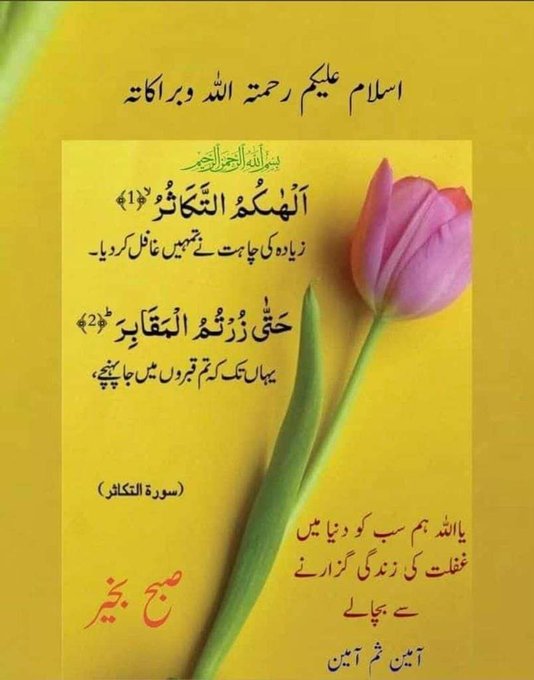 اسلام علیکم رحمتہ اللہ وبراکاتہ
بِسْمِ اللّٰهِ الرَّحْمٰنِ الرَّحِيْمِ
اَلْهٰىكُمُ التَّكَاثُرُۙ ﴿1﴾
زیادہ کی چاہت نے تمہیں غافل کردیا۔
حَتّٰى زُرْتُمُ الْمَقَابِرَؕ ﴿2﴾
یہاں تک کہ تم قبروں میں جا پہنچے،
(سورة التکاثر)
یااللہ ہم سب کو دنیا میں
غفلت کی زندگی گزارنے
سے بچالے
آمین ثم آمین
صبح بخیر